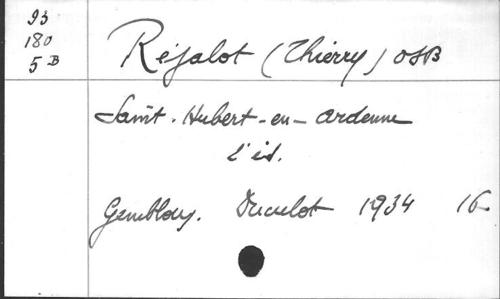 93
180
5 B
Réjalot (Thierry) OSB
Saint-Hubert-en-Ardenne
2 éd.
Gembloux. Duculot 1934 16